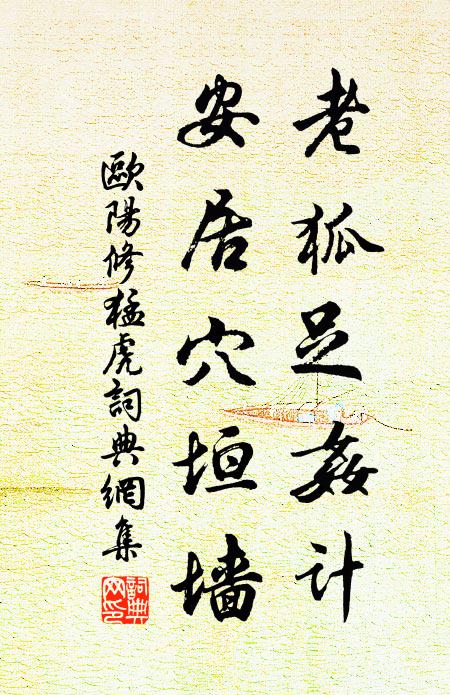 老狐足姦计
安居穴垣墙
歐陽修猛虎詞典網集
詞典网印